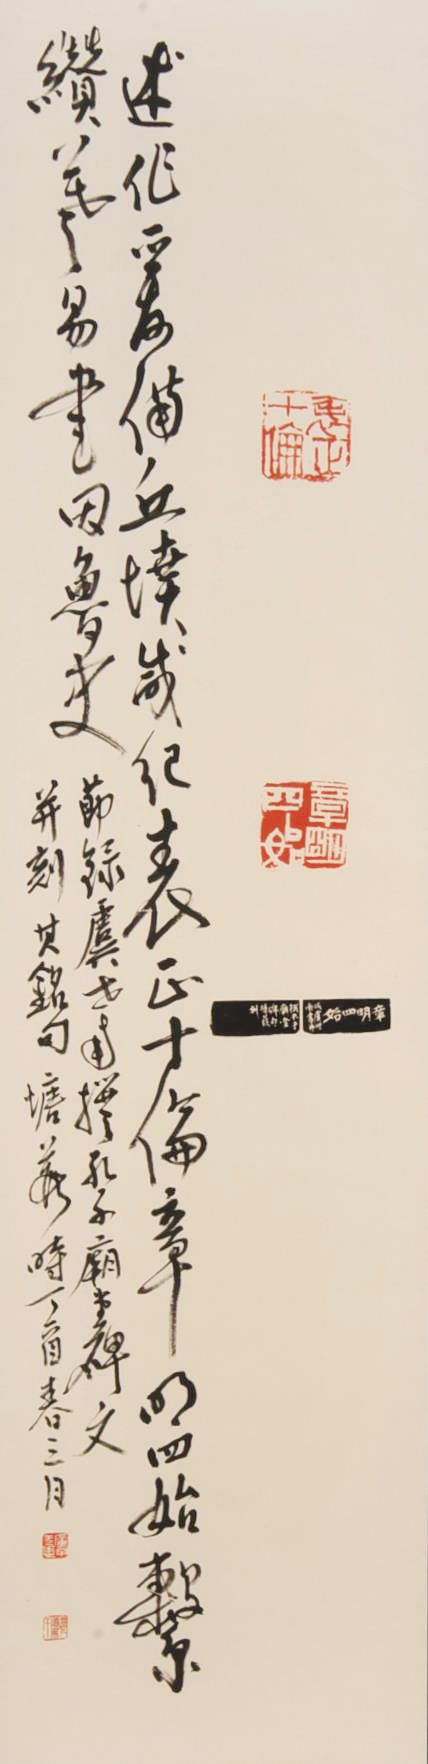 表正十倫
章明四始
章明四始
述作爰備丘墳咸紀表正十倫章明四始繫
纘羲易書因魯史
節錄虞世南撰孔子廟堂碑文
并刻其銘句塘時丁酉春三月